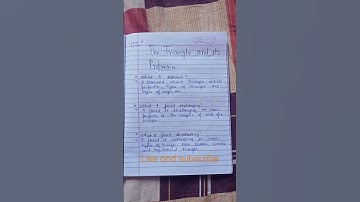 The Triangle and its
Properties
What I learned?
I learned about triangle and its
property, types of triangle and
types of angle etc.
What I found challenging?
I found is challenging to learn
property of the length of side of a
triangle.
What I found interesting?
I found is interesting to learn
types of triangle like scalene,
and equilateral triangle.
Like and subscribe